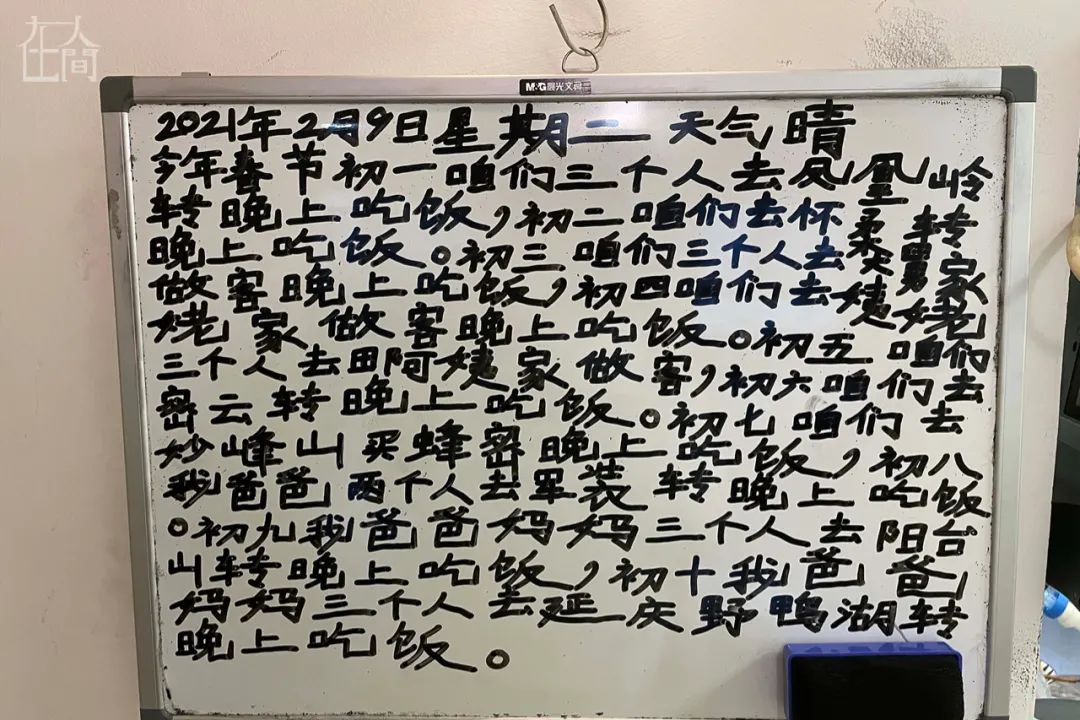 在人間
M&G晨光文具
2021年2月9日星期二 天气晴
今年春节初一咱们三个人去凤凰岭
转晚上吃饭，初二咱们去怀柔转
晚上吃饭。初三咱们三个人去舅家
做客晚上吃饭，初四咱们去姨姥
姥家做客晚上吃饭。初五咱们
三个人去田阿姨家做客，初六咱们去
密云转晚上吃饭。初七咱们去
妙峰山买蜂密晚上吃饭，初八
我爸爸两个人去军装转晚上吃饭
。初九我爸爸妈妈三个人去阳台
山转晚上吃饭，初十我爸爸
妈妈三个人去延庆野鸭湖转
晚上吃饭。